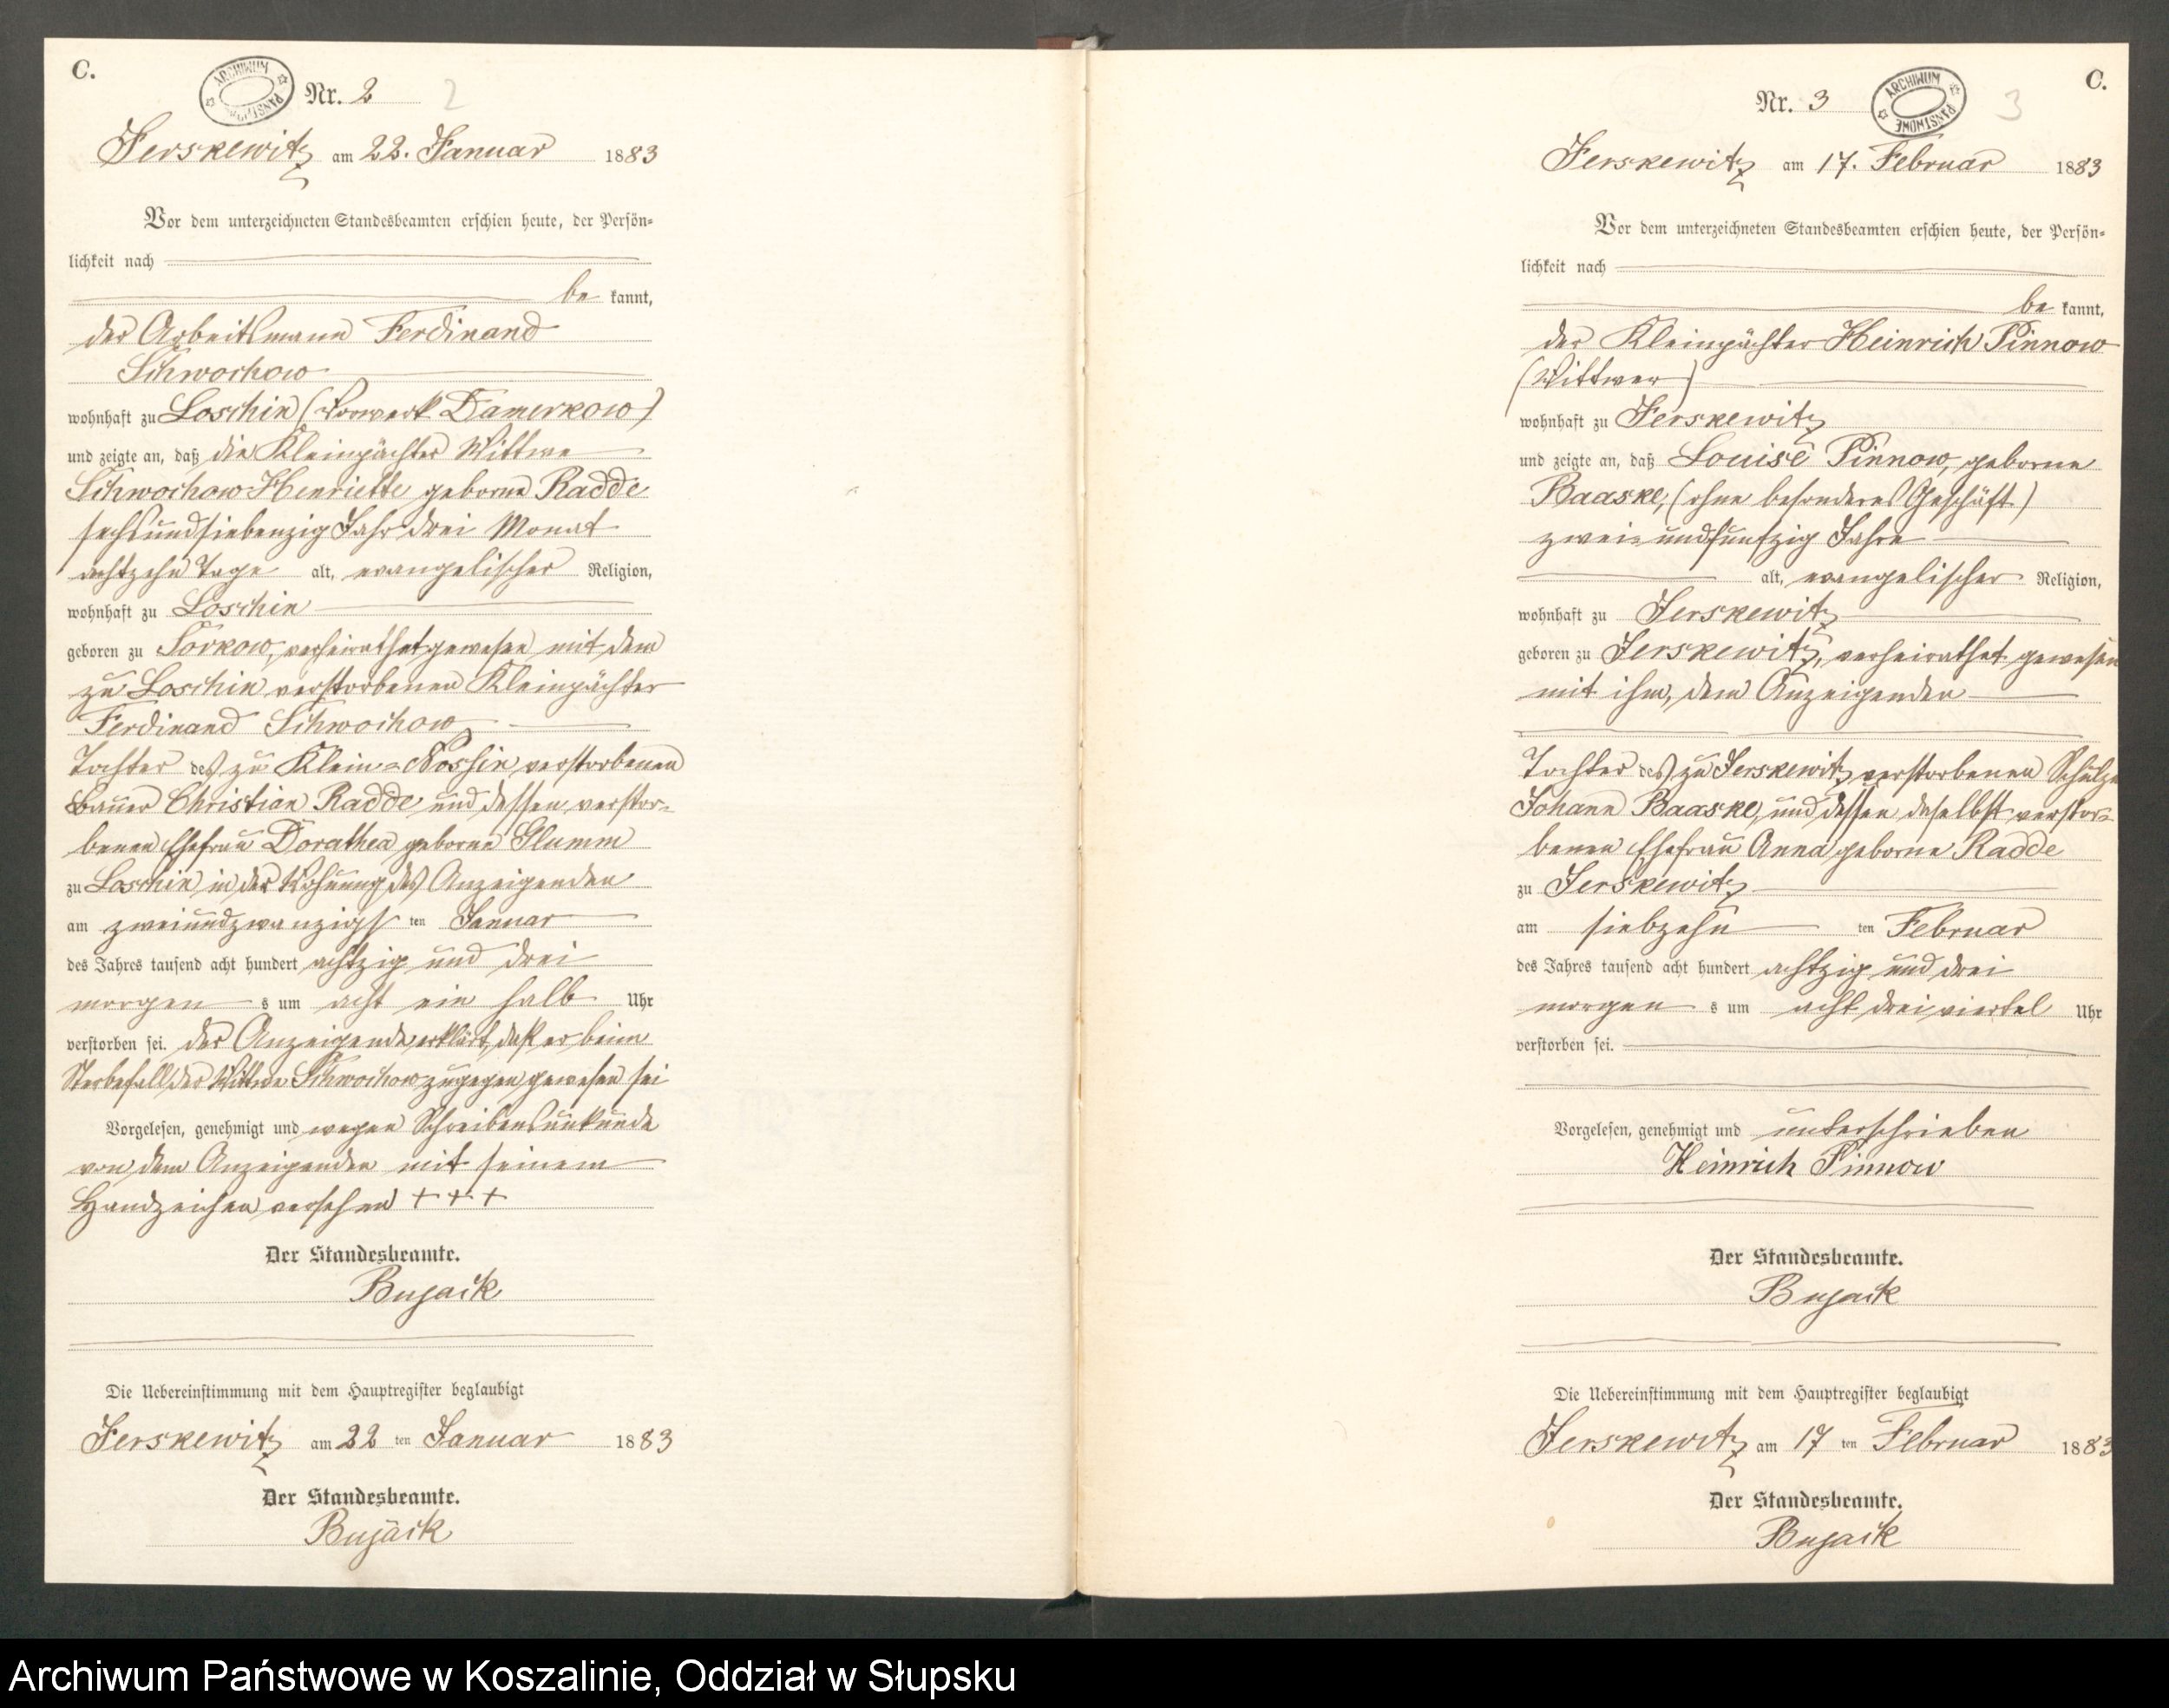 C.
ARCHIWUM PAŃSTWOWE
Nr. 2
2
Jerskewitz am 22. Januar 1883
Vor dem unterzeichneten Standesbeamten erschien heute, der Persön-
lichkeit nach
be kannt,
der Arbeitsmann Ferdinand
Schwochow
wohnhaft zu Loschin (Vorwerk Damerkow)
und zeigte an, daß die Kleinpächter Wittwe
Schwochow Henriette geborne Radde
sechsundsiebenzig Jahr drei Monat
achtzehn Tage alt, evangelischer Religion,
wohnhaft zu Loschin
geboren zu Torkow, verheirathet gewesen mit dem
zu Loschin verstorbenen Kleinpächter
Ferdinand Schwochow
Tochter des zu Klein-Nossin verstorbenen
Bauer Christian Radde und dessen verstor-
benen Ehefrau Dorathea geborne Glumm
zu Loschin in der Wohnung des Anzeigenden
am zweiundzwanzigsten Januar
des Jahres tausend acht hundert achtzig und drei
morgens um acht ein halb Uhr
verstorben sei. der Anzeigende erklärt, daß er beim
Sterbefall der Wittwe Schwochow zugegen gewesen sei
Vorgelesen, genehmigt und wegen Schreibensunkunde
von dem Anzeigenden mit seinem
Handzeichen versehen + + +
Der Standesbeamte.
Bujack
Die Uebereinstimmung mit dem Hauptregister beglaubigt
Jerskewitz am 22 ten Januar 1883
Der Standesbeamte.
Bujack
C.
Nr. 3
ARCHIWUM PAŃSTWOWE
3
Jerskewitz am 17. Februar 1883
Vor dem unterzeichneten Standesbeamten erschien heute, der Persön-
lichkeit nach
be kannt,
der Kleinpächter Heinrich Pinnow
(Wittwer)
wohnhaft zu Jerskewitz
und zeigte an, daß Louise Pinnow, geborne
Baaske, (ohne besonderes Geschäft)
zwei-undfunfzig Jahre
alt, evangelischer Religion,
wohnhaft zu Jerskewitz
geboren zu Jerskewitz, verheirathet gewesen
mit ihm, dem Anzeigenden
Tochter des zu Jerskewitz verstorbenen Schulze
Johann Baaske, und dessen daselbst verstor-
benen Ehefrau Anna geborne Radde
zu Jerskewitz
am siebzehn ten Februar
des Jahres tausend acht hundert achtzig und drei
morgens um acht dreiviertel Uhr
verstorben sei.
Vorgelesen, genehmigt und unterschrieben
Heinrich Pinnow
Der Standesbeamte.
Bujack
Die Uebereinstimmung mit dem Hauptregister beglaubigt
Jerskewitz am 17 ten Februar 1883
Der Standesbeamte.
Bujack
Archiwum Państwowe w Koszalinie, Oddział w Słupsku